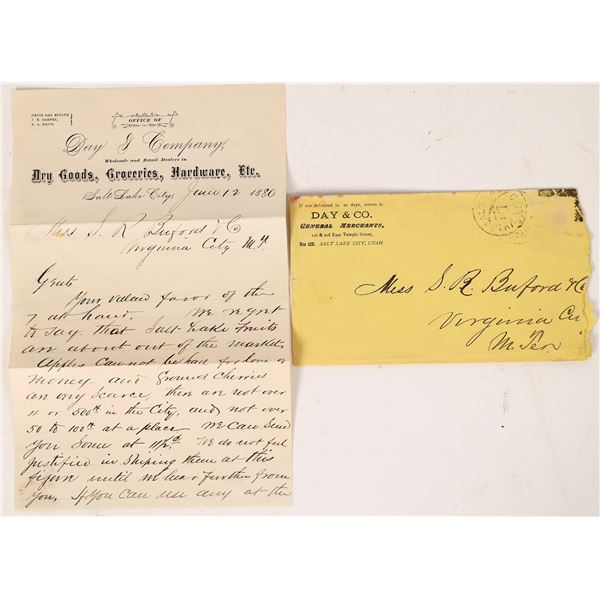 DAVID DAY ESTATE,
J. R. BARNES,
N. L. DAVIS
OFFICE OF
Day & Company,
Wholesale and Retail Dealers in
Dry Goods, Groceries, Hardware, Etc.
Salt Lake City, June 12 1880
Mess S. R. Buford & Co
Virginia City M.T.
Gents
Your valued favor of the
7 at hand. We regret
to say that Salt Lake Fruits
are about out of the market
Apples cannot be had for love or
money and Ground Cherries
are very scarce, there are not over
4 or 500lb in the City, and not over
50 to 100lb at a place. We can send
you some at 11½
We do not feel
justified in shiping them at this
figure until we hear further from
you. If you can use any at the
If not delivered in 10 days, return to
DAY & CO.
GENERAL MERCHANTS,
East Temple Street,
Box SALT LAKE CITY, UTAH
Mess S. R. Buford & Co
Virginia City
M Ter